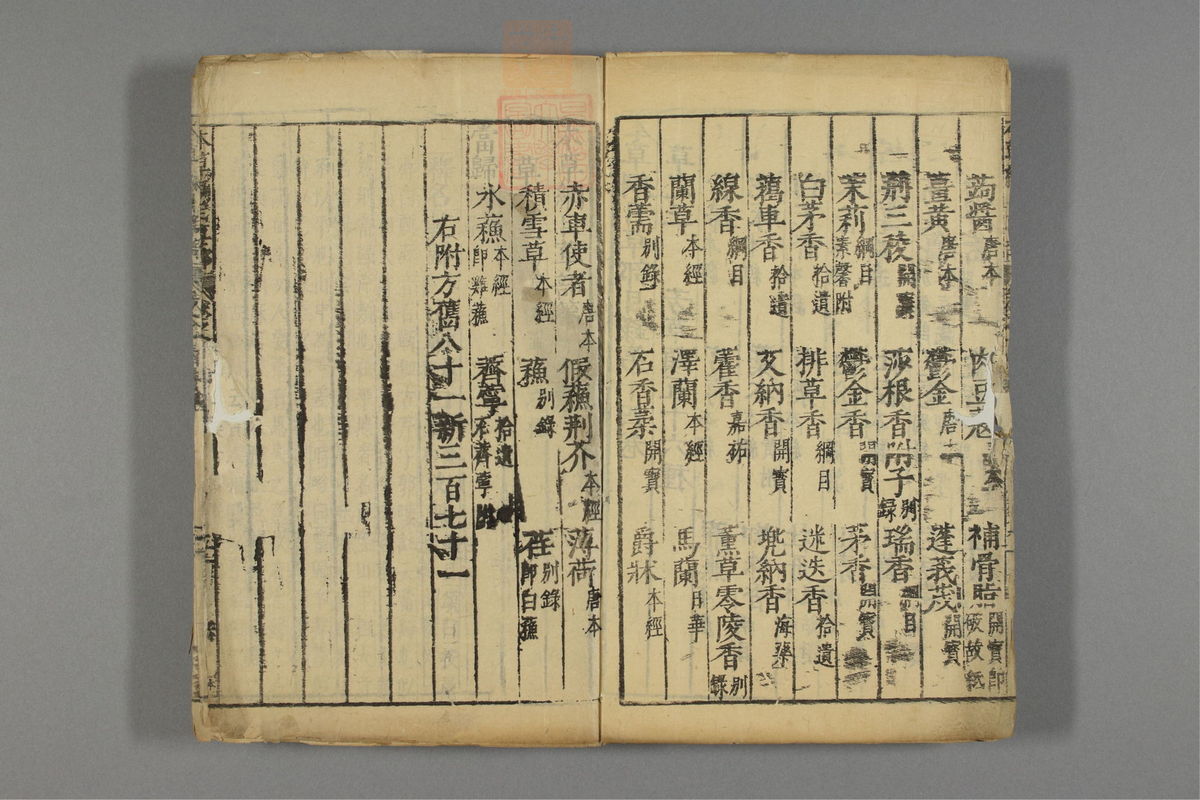 蒟醬唐本 肉豆蔻 補骨脂開寶即破故紙
薑黃唐本 鬱金唐本 蓬莪茂開寶
荊三稜開寶 莎根香附子別錄 瑞香綱目
茉莉綱目素馨附 鬱金香開寶 茅香開寶
白茅香拾遺 排草香綱目 迷迭香拾遺
藒車香拾遺 艾納香開寶 兜納香海藥
線香綱目 藿香嘉祐 薰草零陵香別錄
蘭草本經 澤蘭本經 馬蘭日華
香薷別錄 石香葇開寶 爵牀本經
赤車使者唐本 假蘇荊芥本經 薄荷唐本
積雪草本經 蘇別錄 荏別錄即白蘇
水蘇本經即雞蘇 薺薴拾遺石薺薴附
右附方舊八十一新三百七十一